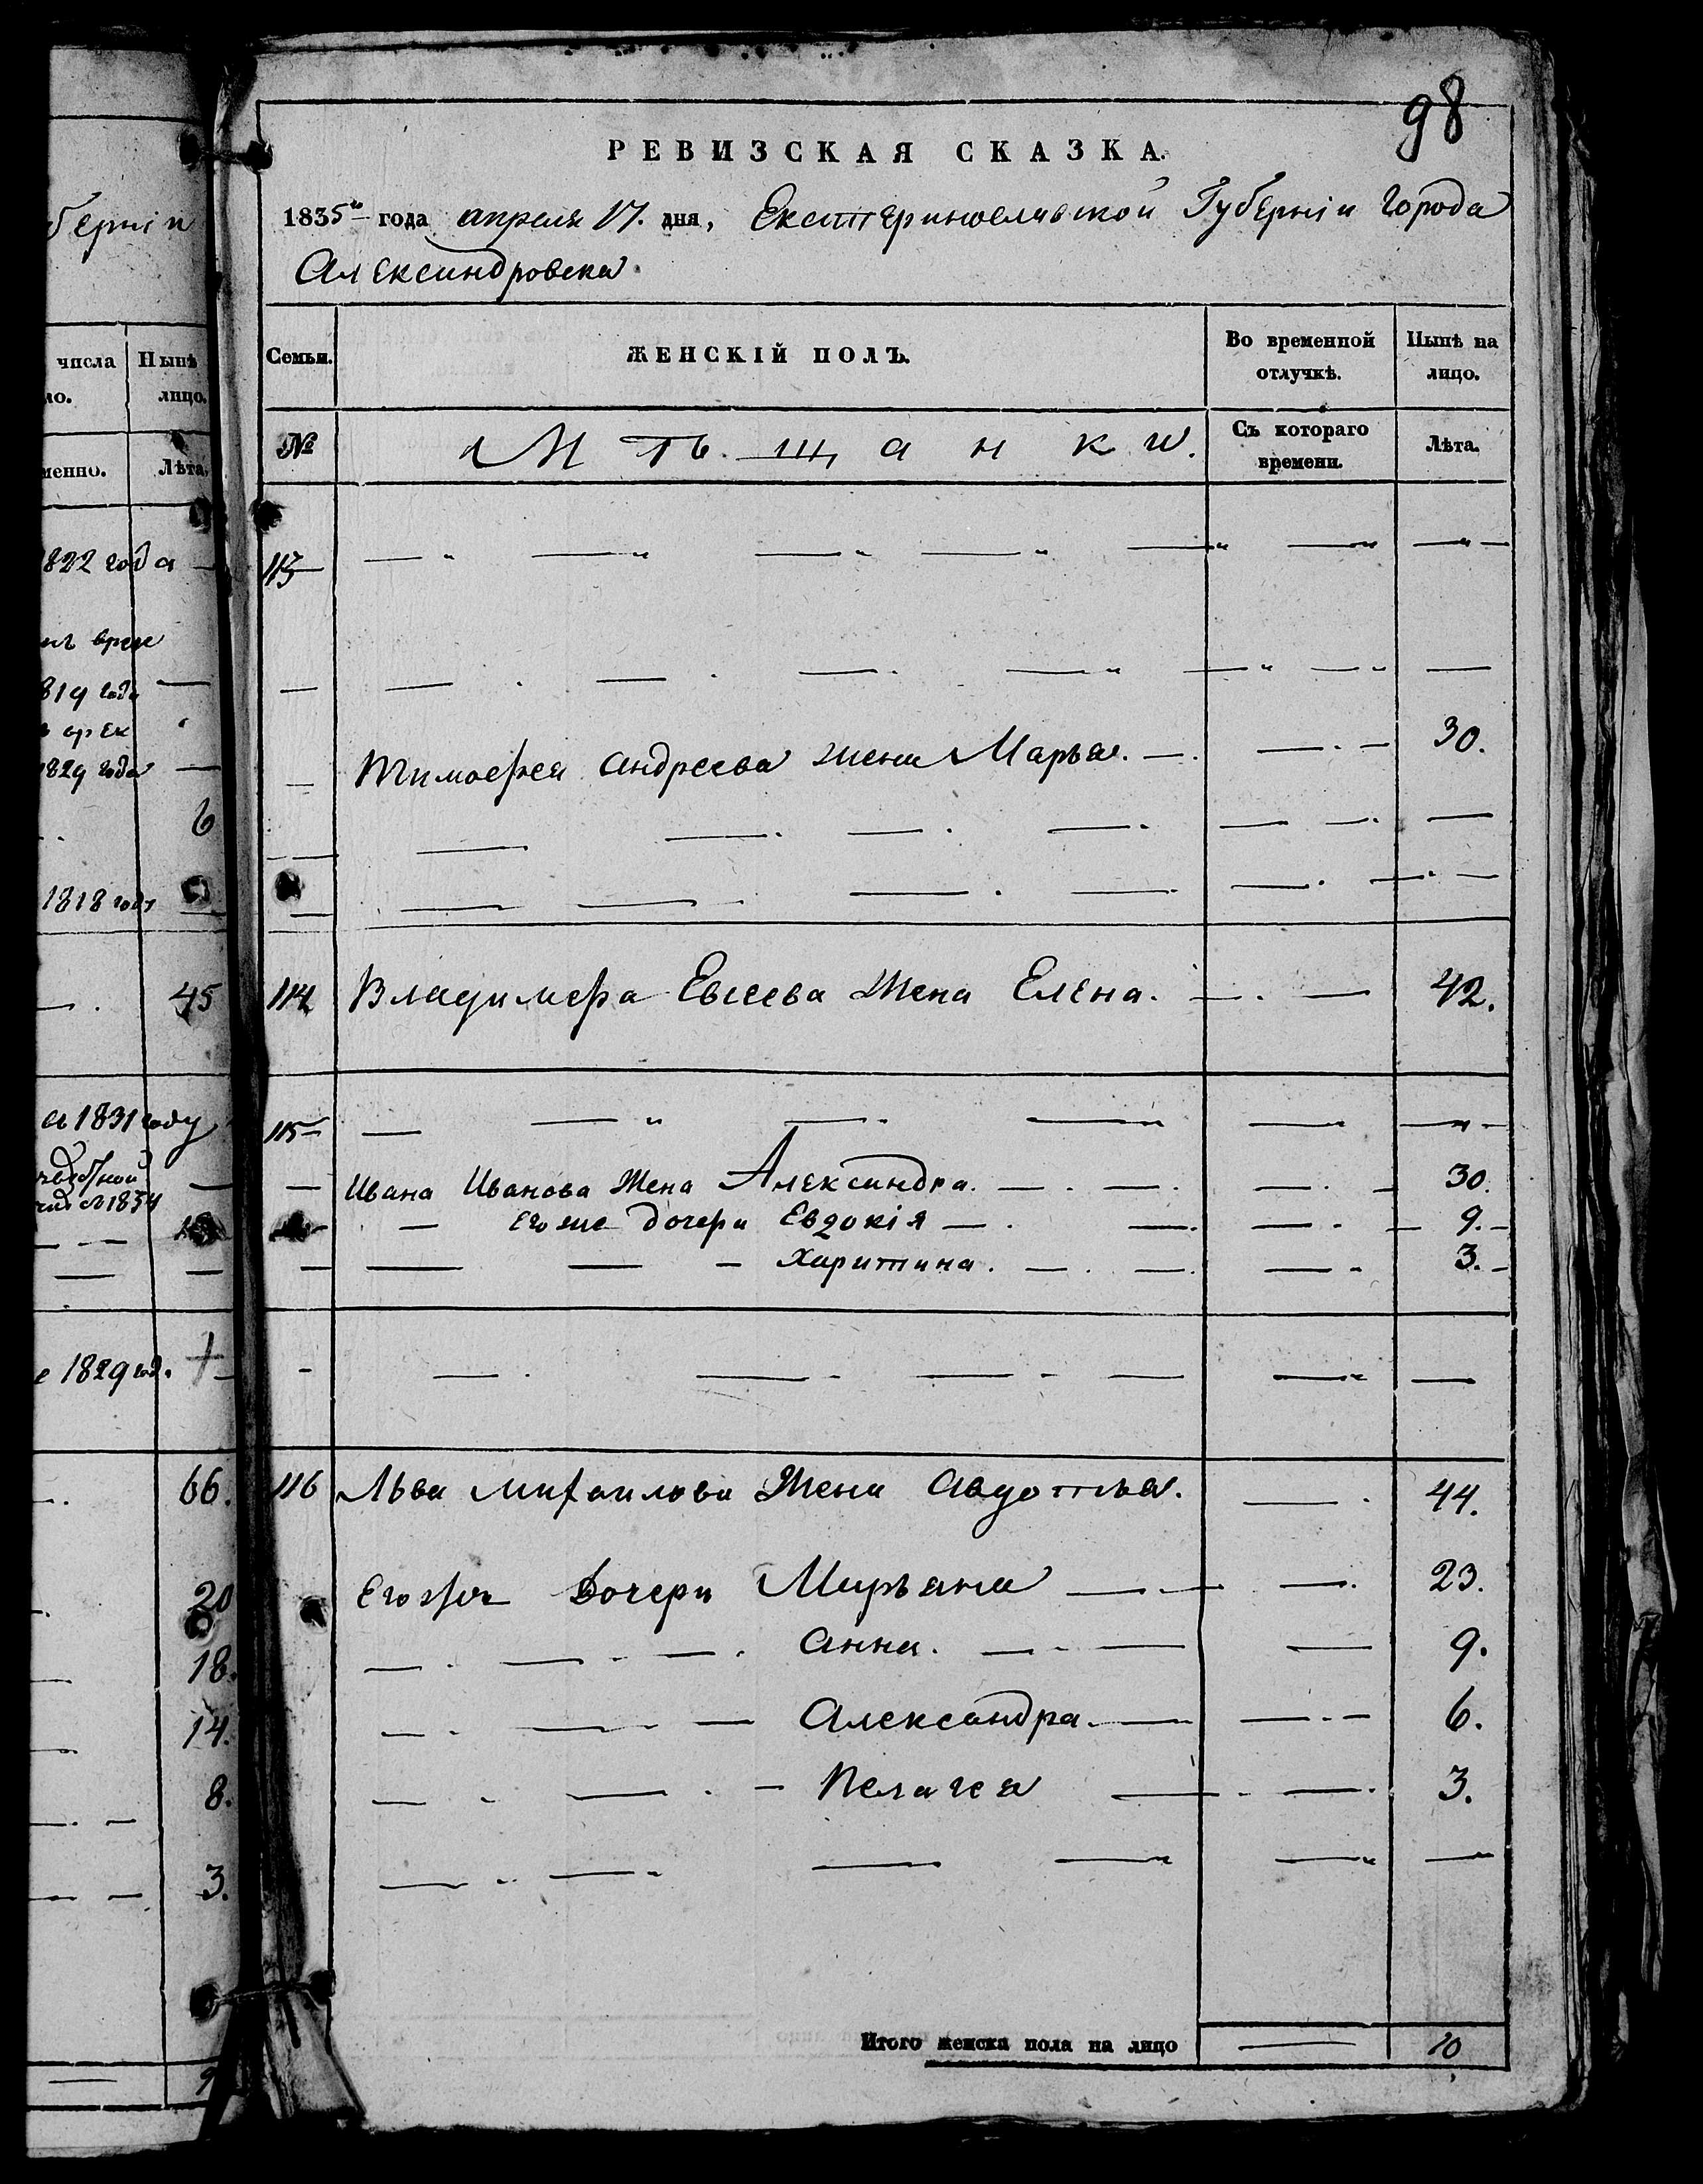 98
РЕВИЗСКАЯ СКАЗКА.
1835го года апреля 17. дня, Екатеринославской Губерніи Города
Александровска.
Семьи. ЖЕНСКІЙ ПОЛЪ. Во временной отлучкѣ. Нынѣ на лицо.
№ Мѣщанки. Съ котораго времени. Лѣта.
113
Тимофея Андреева жена Марья. 30.
114 Владимера Евсеева Жена Елена. 42.
115
Ивана Иванова Жена Александра. 30.
Его же дочери Евдокія 9.
Харитина. 3.
116 Льва Михаилова Жена Авдотья. 44.
Его же Дочери Марьяна 23.
Анна. 9.
Александра. 6.
Пелагея 3.
Итого женска пола на лицо 10
берніи
числа Нынѣ
ло. лицо.
менно. Лѣта.
1822 года
819 года
1829 года
6
1818 году
45
въ 1831 году
1834
1829 год.
66.
20
18.
14.
8.
3.